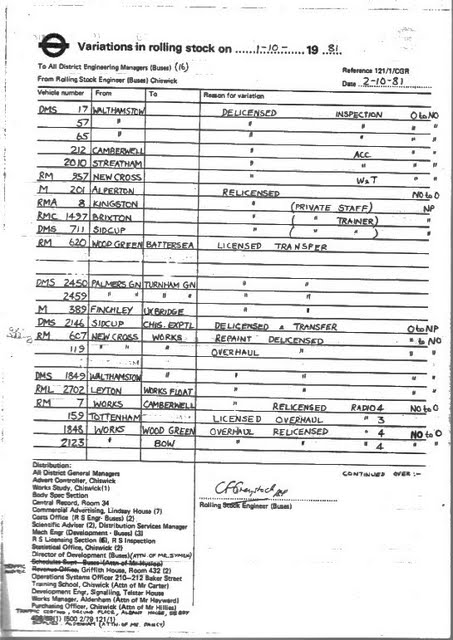 Variations in rolling stock on 1-10- 19 81.
To All District Engineering Managers (Buses) (16)
Reference 121/1/CGR
From Rolling Stock Engineer (Buses) Chiswick
Date 2-10-81
Vehicle number From To Reason for variation
DMS 17 WALTHAMSTOW DELICENSED INSPECTION O to NO
57 " " " "
65 " " " "
212 CAMBERWELL " ACC "
2010 STREATHAM " " "
RM 957 NEW CROSS " W&T "
M 201 ALPERTON RELICENSED NO to O
RMA 8 KINGSTON " (PRIVATE STAFF) NP
RMC 1497 BRIXTON " ( " TRAINER) "
DMS 711 SIDCUP " ( " " ) "
RM 620 WOOD GREEN BATTERSEA LICENSED TRANSFER
DMS 2450 PALMERS GN TURNHAM GN " "
2459 " " " " " "
M 389 FINCHLEY UXBRIDGE " "
DMS 2146 SIDCUP CHIS. EXPTL DELICENSED & TRANSFER O to NP
RM 607 NEW CROSS WORKS REPAINT DELICENSED " to NO
119 " " OVERHAUL " "
DMS 1849 WALTHAMSTOW " " " "
RML 2702 LEYTON WORKS FLOAT " " "
RM 7 WORKS CAMBERWELL " RELICENSED RADIO 4 NO to O
159 TOTTENHAM LICENSED OVERHAUL " 3
1848 WORKS WOOD GREEN OVERHAUL RELICENSED " 4 NO to O
2123 " BOW " " " 4 "
Distribution:
CONTINUED OVER:-
All District General Managers
Advert Controller, Chiswick
Works Study, Chiswick(1)
Body Spec Section
Central Record, Room 34
Rolling Stock Engineer (Buses)
Commercial Advertising, Lindsay House (7)
Costs Office (R S Engr- Buses) (2)
Scientific Adviser (2), Distribution Services Manager
Mech Engr (Development - Buses) (3)
R S Licensing Section (6), R S Inspection
Statistical Office, Chiswick (2)
Director of Development (Buses)
Schedules Supt - Buses (Attn of Mr Hyslop)
Revenue Office, Griffith House, Room 432 (2)
Operations Systems Officer 210-212 Baker Street
Training School, Chiswick (Attn of Mr Carter)
Development Engr, Signalling, Telstar House
Works Manager, Aldenham (Attn of Mr Hayward)
Purchasing Officer, Chiswick (Attn of Mr Hillies)